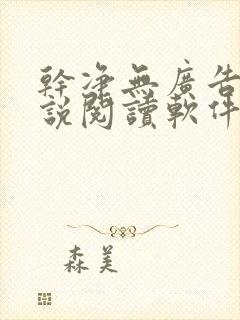 幹淨無廣告
説閱讀軟件
森美